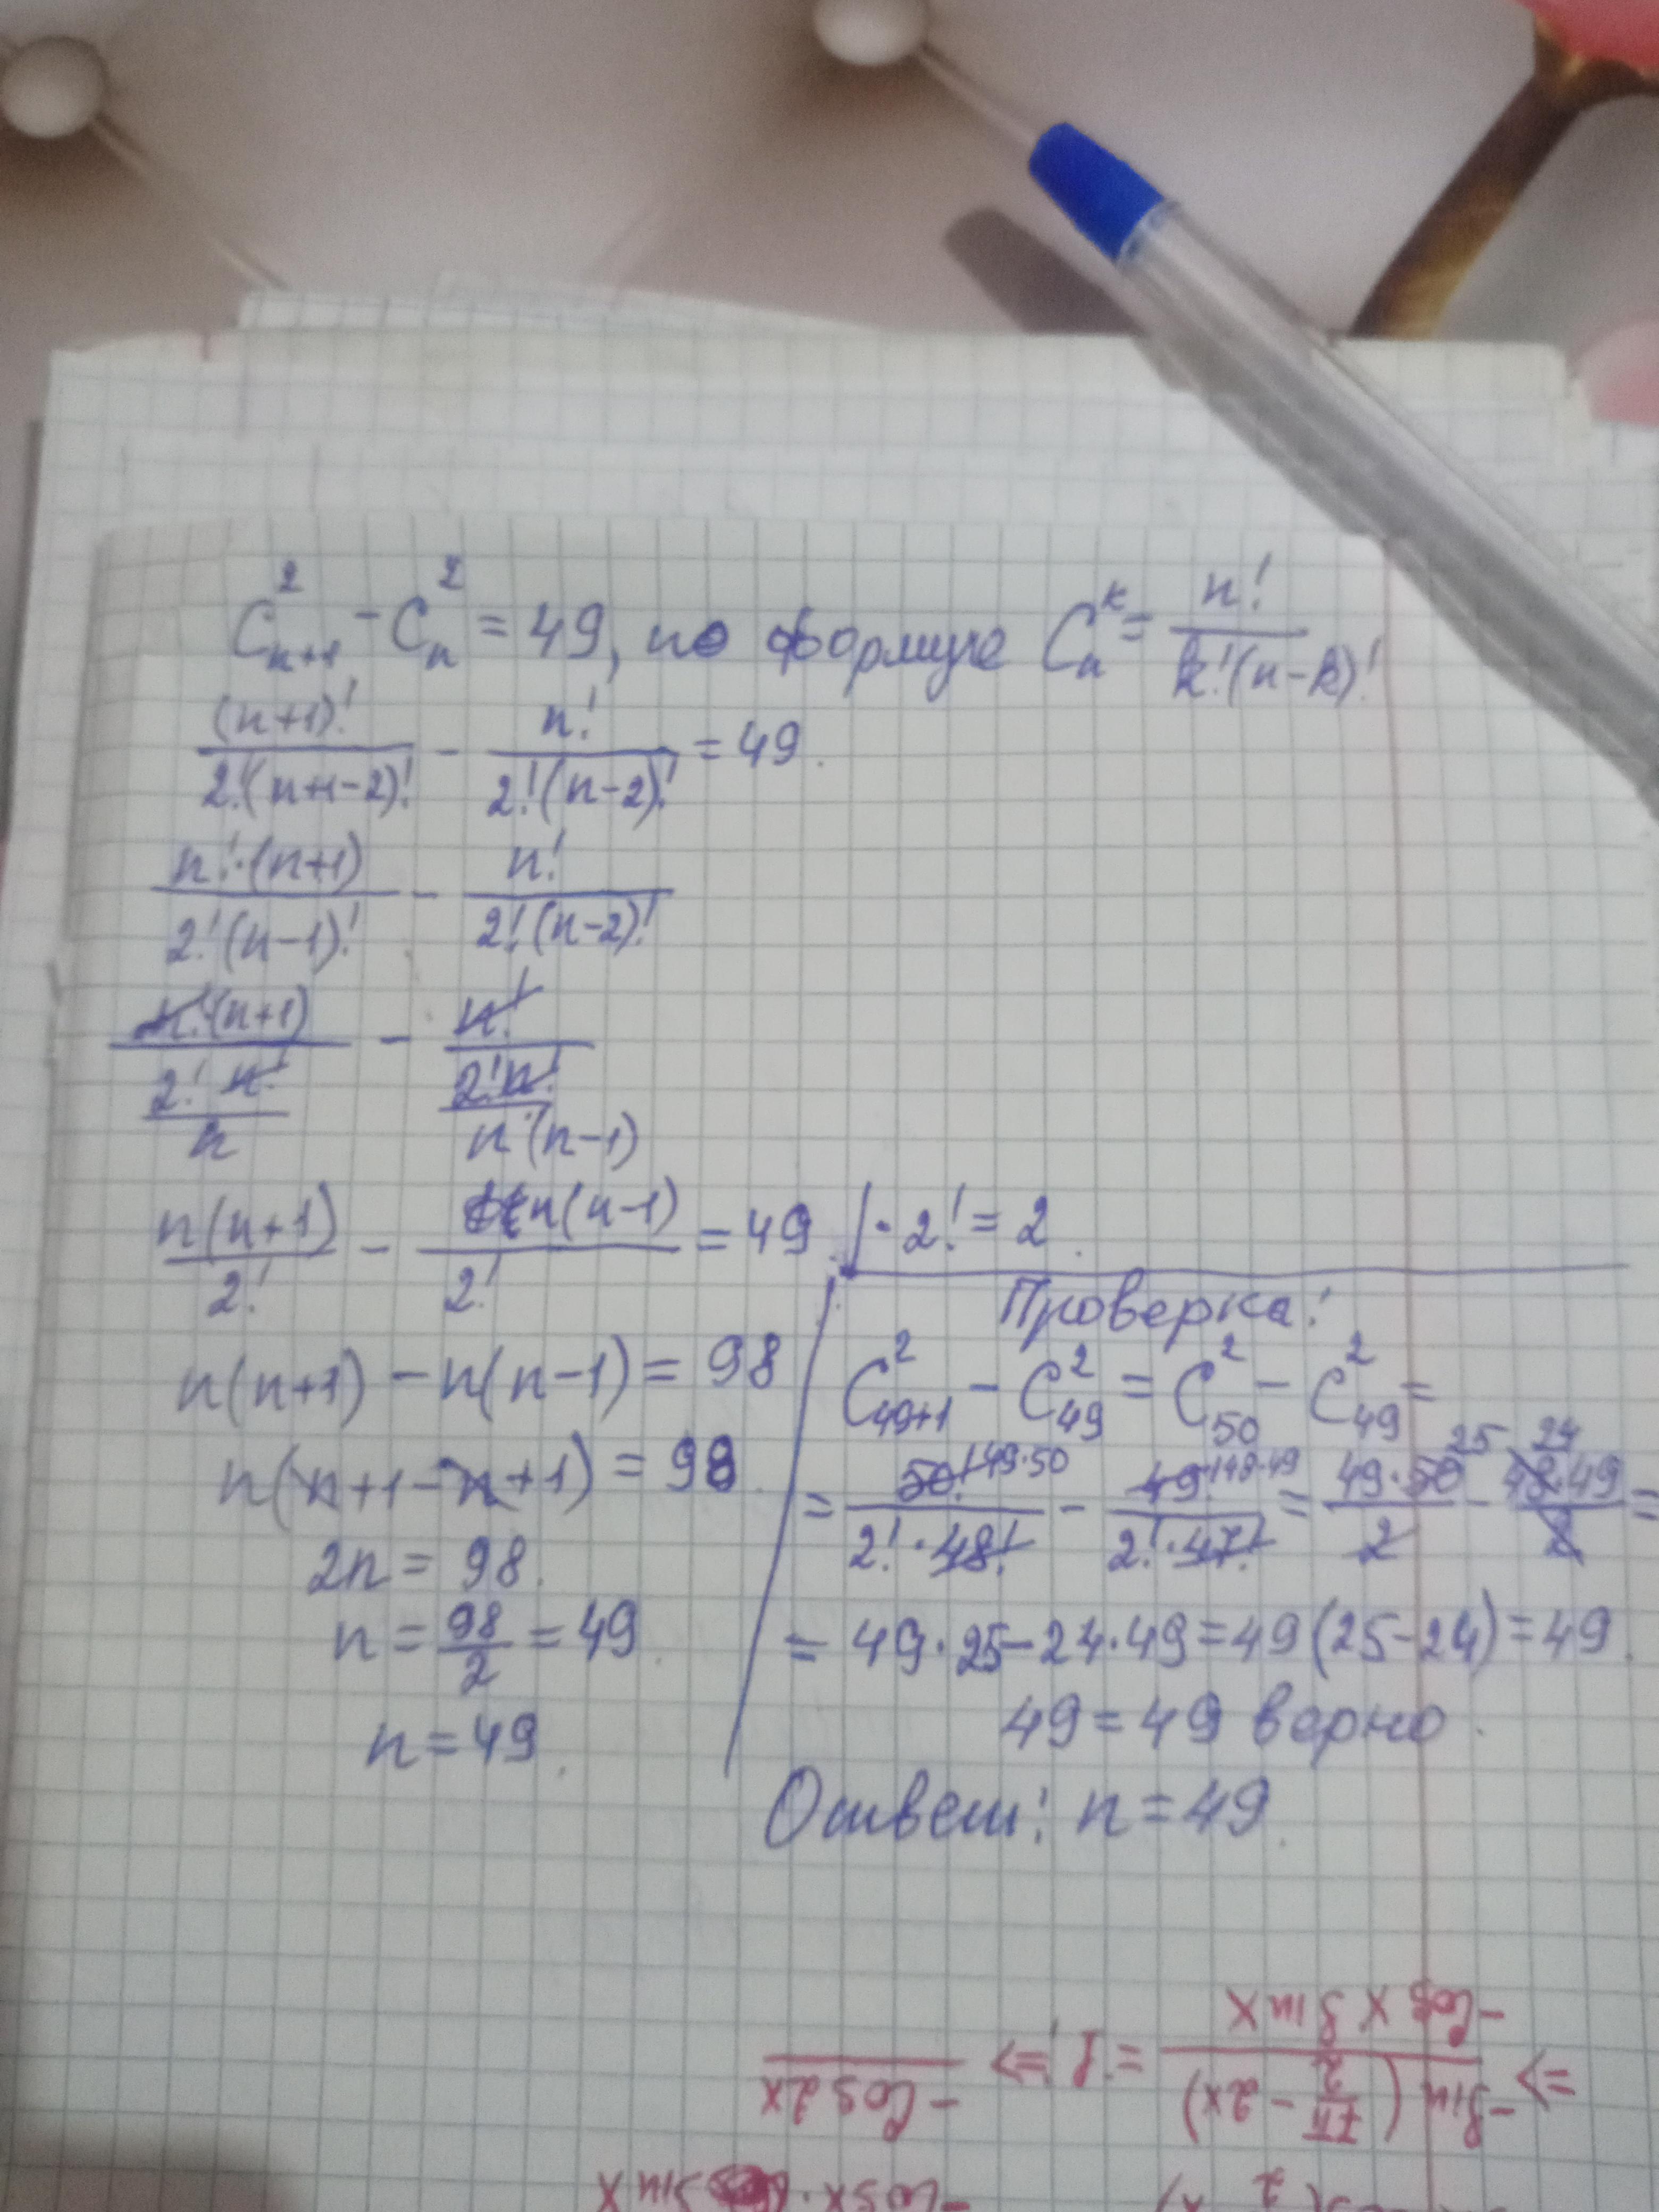 C²ₙ₊₁ - C²ₙ = 49, по формуле Cᵏₙ = n! / k!(n-k)!
(n+1)! / 2!(n+1-2)! - n! / 2!(n-2)! = 49.
n!·(n+1) / 2!(n-1)! - n! / 2!(n-2)!
n!(n+1) / (2! n! / n) - n! / (2! n! / n·(n-1))
n(n+1) / 2! - n(n-1) / 2! = 49 | · 2! = 2.
n(n+1) - n(n-1) = 98
n(n+1-n+1) = 98.
2n = 98.
n = 98/2 = 49.
n = 49.
Проверка:
C²₄₉₊₁ - C²₄₉ = C²₅₀ - C²₄₉ =
= 50! 49·50 / 2!·48! - 49! 48·49 / 2!·47! = 49·50 25 / 2 - 48 24·49 / 2 =
= 49·25-24·49 = 49(25-24) = 49.
49 = 49 верно.
Ответ: n = 49.
=> -Sin(7π/2 - 2x) / -Cos x Sin x = 1 => -Cos 2x